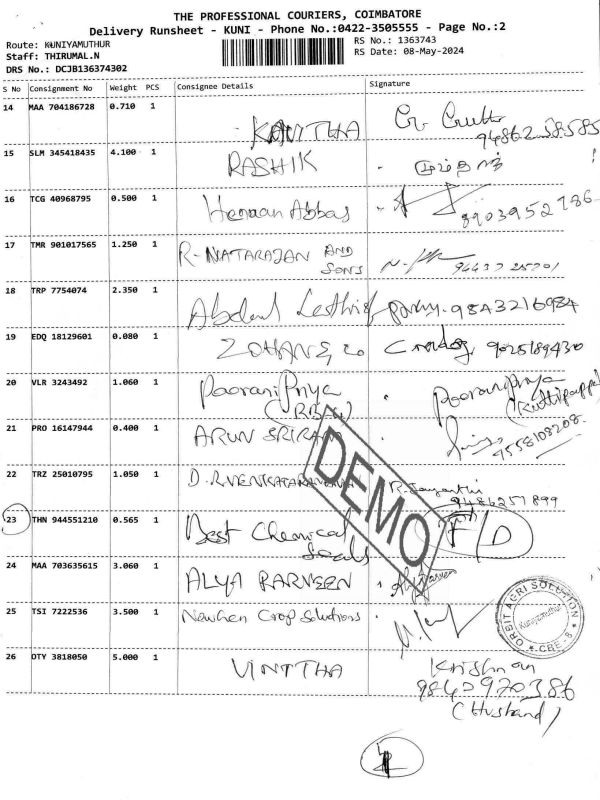 THE PROFESSIONAL COURIERS, COIMBATORE
Delivery Runsheet - KUNI - Phone No.:0422-3505555 - Page No.:2
Route: KUNIYAMUTHUR
RS No.: 1363743
Staff: THIRUMAL.N
RS Date: 08-May-2024
DRS No.: DCJB136374302
S No Consignment No Weight PCS Consignee Details Signature
14 MAA 704186728 0.710 1 KAVITHA 9486258585
15 SLM 345418435 4.100 1 RASHIK
16 TCG 40968795 0.500 1 Abbas 8903952786
17 TMR 901017565 1.250 1 R-NATARAJAN AND SONS
18 TRP 7754074 2.350 1 Abdul 9843216984
19 EDQ 18129601 0.080 1 9025189430
20 VLR 3243492 1.060 1 Poorani Priya Poorani Priya
21 PRO 16147944 0.400 1 ARUN SRIRAM 9558108208
22 TRZ 25010795 1.050 1 R. Jayanthi 9486257899
23 THN 944551210 0.565 1 Best Chemical F/D
24 MAA 703635615 3.060 1 ALYA PARVEEN
25 TSI 7222536 3.500 1 Crop Solutions
26 DTY 3818050 5.000 1 VINITHA Krishnan
9840970386
(Husband)
DEMO
ORBIT AGRI SOLUTION
Kuniyamuthur
CBE-8